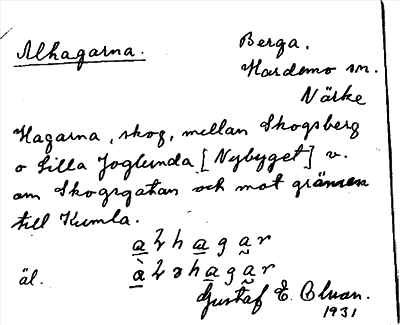 Alhagarna.
Berga.
Hardemo sn.
Närke
Hagarna, skog, mellan Skogsberg
o Lilla Joglunda [Nybyget] v.
om Skogsgatan och mot gränsen
till Kumla.
a l h a g a r
äl. à l ə h a g a r
Gustaf E.
1931